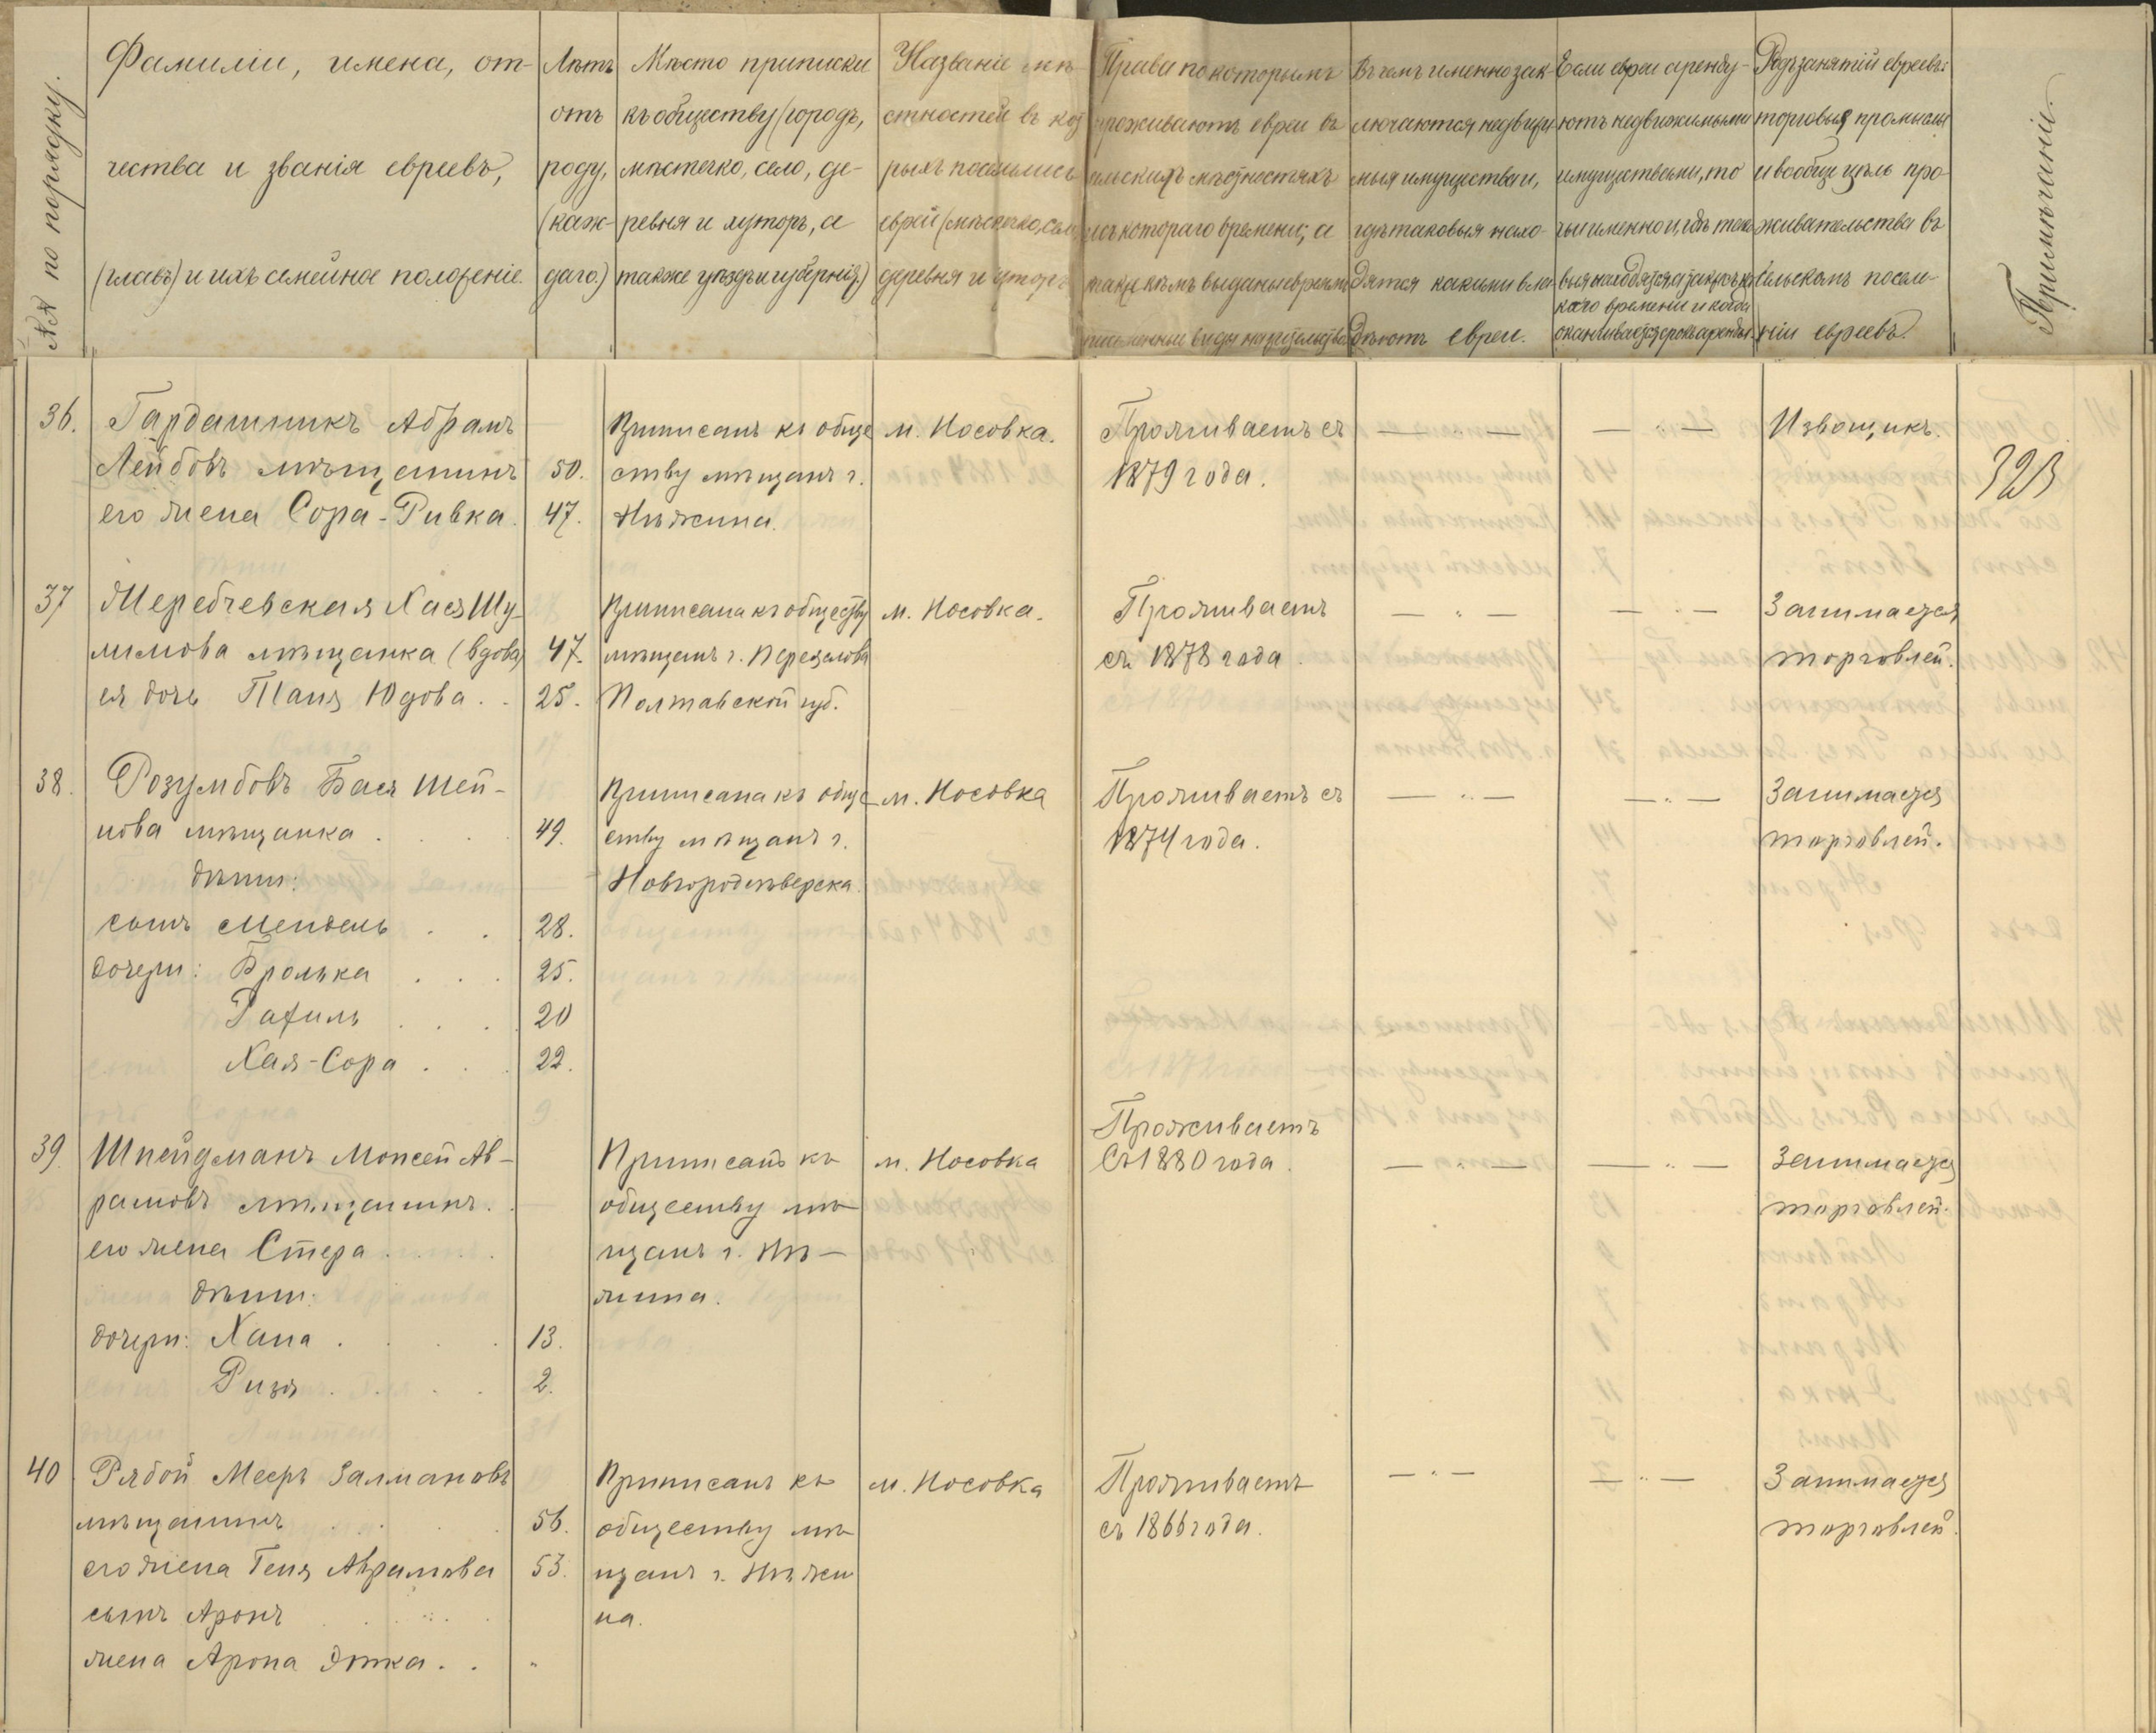 №№ по порядку.
Фамиліи, имена, от-
чества и званія евреевъ,
(главъ) и ихъ семейное положеніе.
Лѣтъ
отъ
роду,
(каж-
даго.)
Мѣсто приписки
къ обществу (городъ,
мѣстечко, село, де-
ревня и хуторъ, а
также уѣздъ и губернія.)
Названіе мѣ-
стностей въ кото
рыхъ поселились
еврей (мѣстечко, село
деревня и хуторъ
Права по которымъ
проживаютъ евреи въ
сельскихъ мѣстностяхъ
и съ котораго времени; а
также кѣмъ выданы евреямъ
письменные виды на жительство
Въ чемъ именно зак-
лючаются недвижи
мыя имущества и,
гдѣ таковыя нахо-
дятся какими вла
дѣютъ евреи.
Если евреи аренду-
ютъ недвижимыми
имуществами, то
чьи именно и, гдѣ тако
выя находятся, а также съ ка
каго времени и когда
оканчивается срокъ аренды.
Родъ занятій евреевъ:
торговыя промыслы
и вообще цѣль про-
живательства въ
сельскомъ поселе-
ніи евреевъ.
Примѣчаніе.
36.
Гардашникъ Абрамъ
Лейбовъ мѣщанинъ
его жена Сора-Ривка.
50.
47.
Приписанъ къ обще
ству мѣщанъ г.
Нѣжина.
м. Носовка.
Проживаетъ съ
1879 года.
— " —
— " —
Извощикъ.
323
37
Жеребчевская Хася Шу-
лимова мѣщанка (вдова)
ея дочь Таня Юдова . .
47.
25.
Приписана къ обществу
мѣщанъ г. Переяслова
Полтавской губ.
м. Носовка.
Проживаетъ
съ 1878 года.
— " —
— " —
Занимается
торговлей.
38.
Розумбовъ Бася Шей-
нова мѣщанка . . .
дѣти:
сынъ Мендель . .
дочери: Бролька . . .
Рахиль . . .
Хая-Сора . . .
49.
28.
25.
20
22.
Приписана къ обще
ству мѣщанъ г.
Новгородсѣверска.
м. Носовка
Проживаетъ съ
1874 года.
— " —
— " —
Занимается
торговлей.
39.
Шнейдманъ Моисей Ав-
рамовъ мѣщанинъ.
его жена Стера . . . .
дѣти:
дочери: Хана . . . .
Ризя . . . .
13.
2.
Приписанъ къ
обществу мѣ
щанъ г. Нѣ-
жина.
м. Носовка
Проживаетъ
Съ 1880 года.
— " —
— " —
Занимается
торговлей.
40
Рябой Мееръ Залмановъ
мѣщанинъ . . . .
его жена Геня Абрамова
сынъ Аронъ . . . .
жена Арона Этка . .
56.
53.
"
Приписанъ къ
обществу мѣ
щанъ г. Нѣжи
на.
м. Носовка
Проживаетъ
съ 1866 года.
— " —
— " —
Занимается
торговлей.